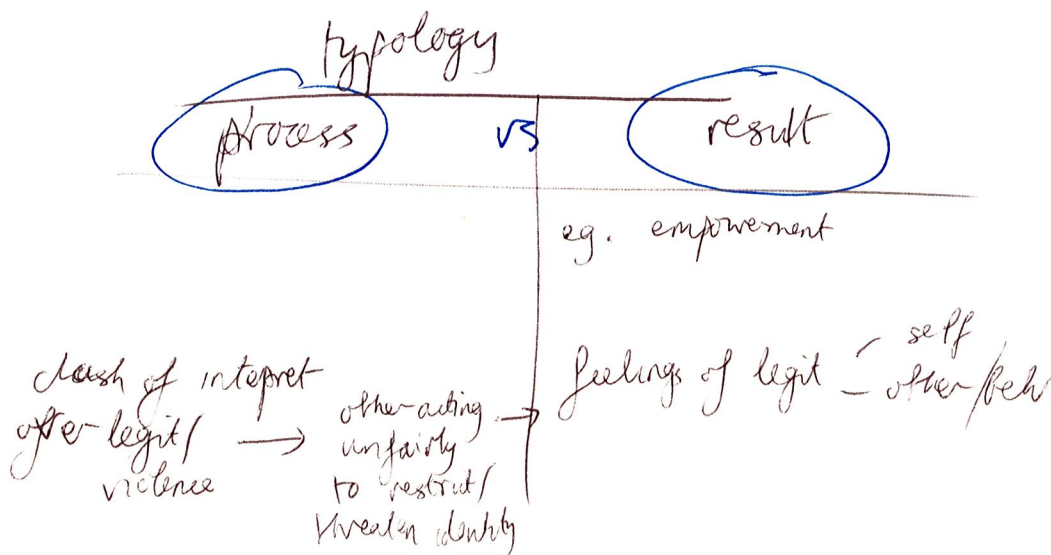 typology
process vs result
eg. empowerment
clash of intepret
after legit/
violence
other acting
unfairly
to restrict/
threaten identity
feelings of legit
self
other/beh